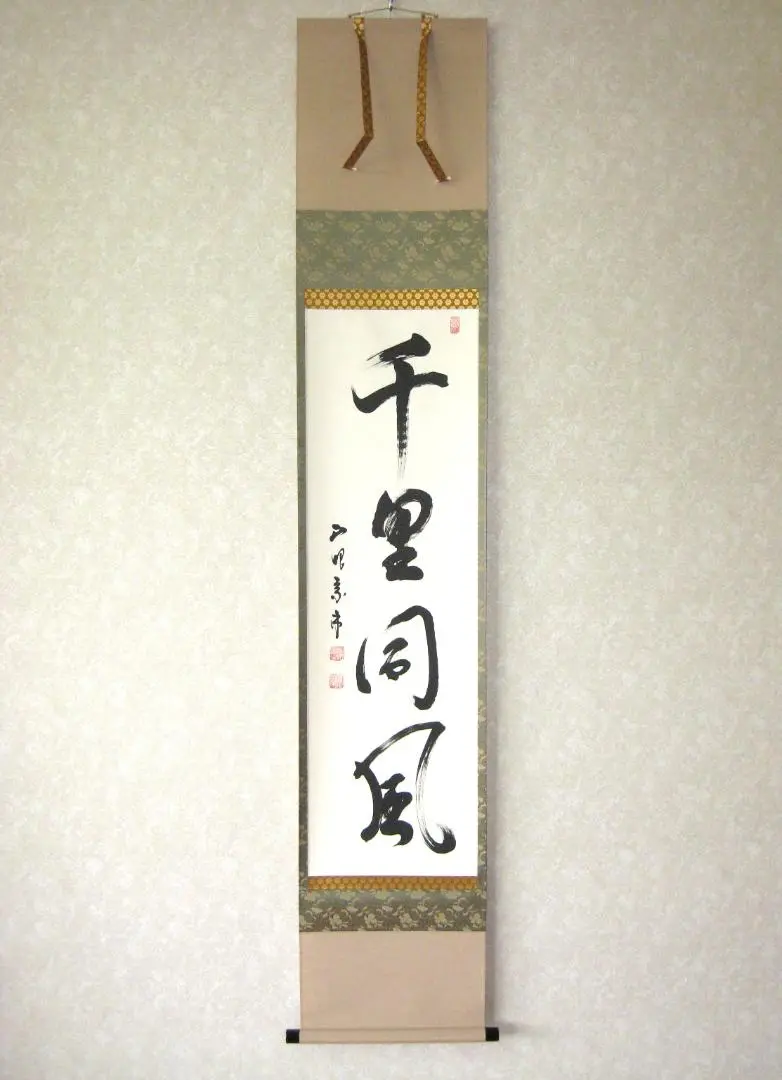 千里同風